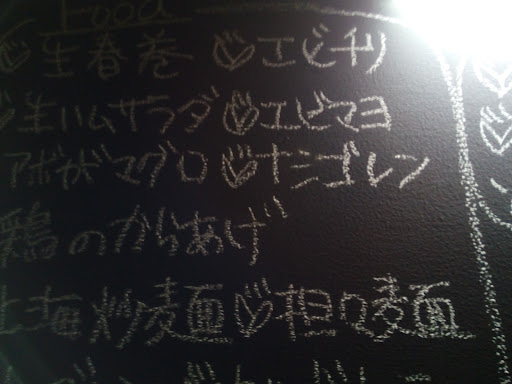 Food
生春巻 エビチリ
生ハムサラダ エビマヨ
アボガマグロ ナシゴレン
鶏のからあげ
上海炒麺 担々麺